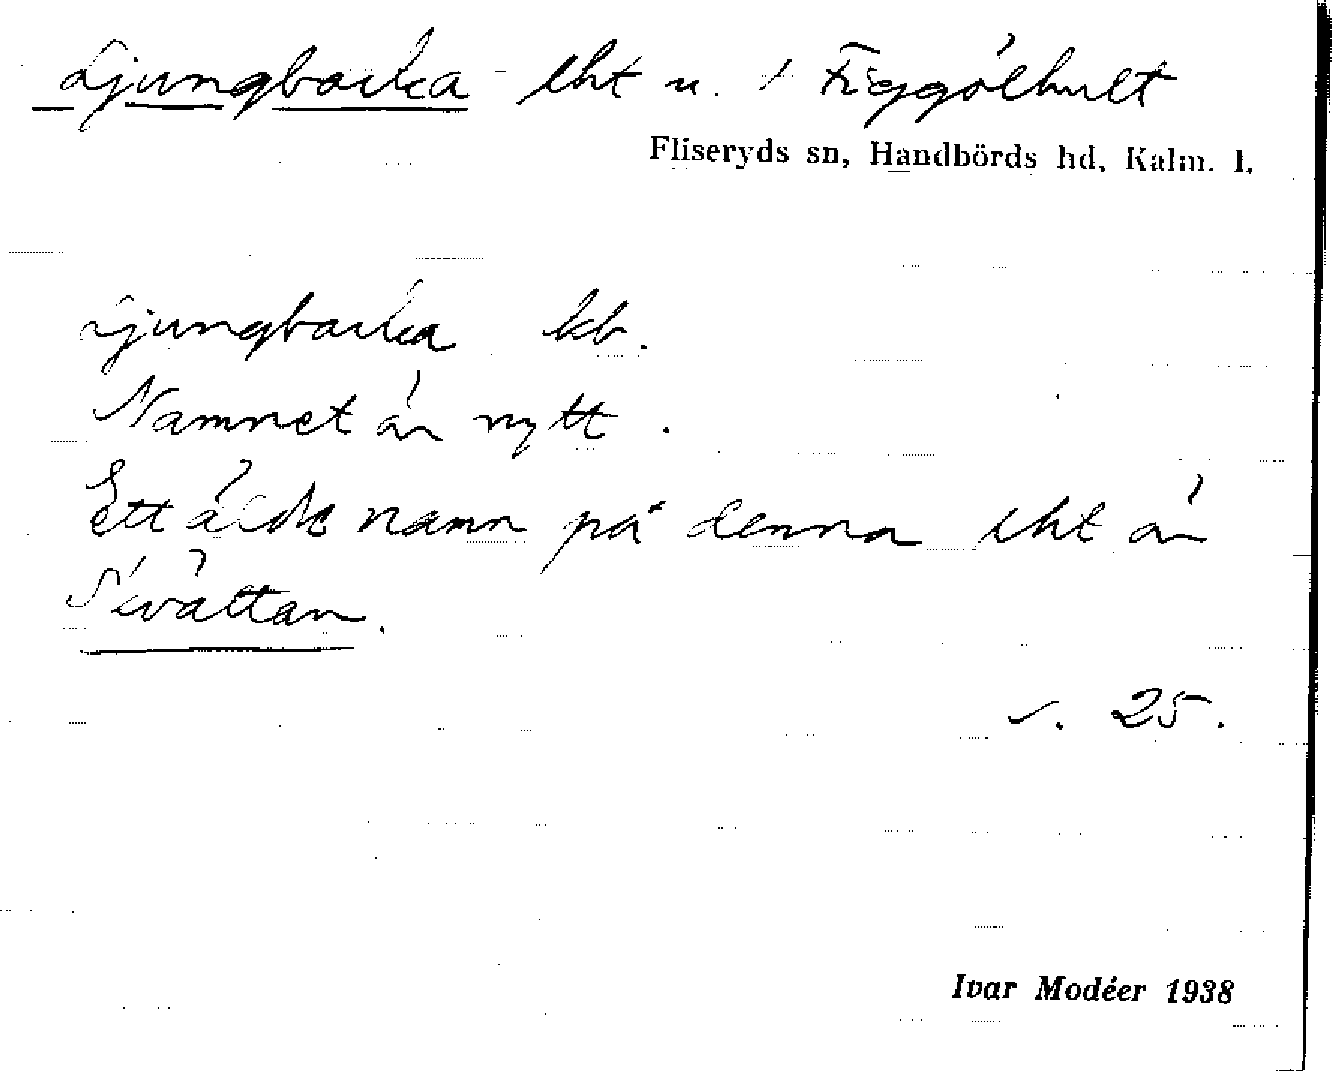 Ljungbacka lht u. 1 Figgölhult
Fliseryds sn, Handbörds hd, Kalm. l.
Ljungbacka kb.
Namnet är nytt.
Ett äldre namn på denna lht är
Sivättan.
s. 25.
Ivar Modéer 1938